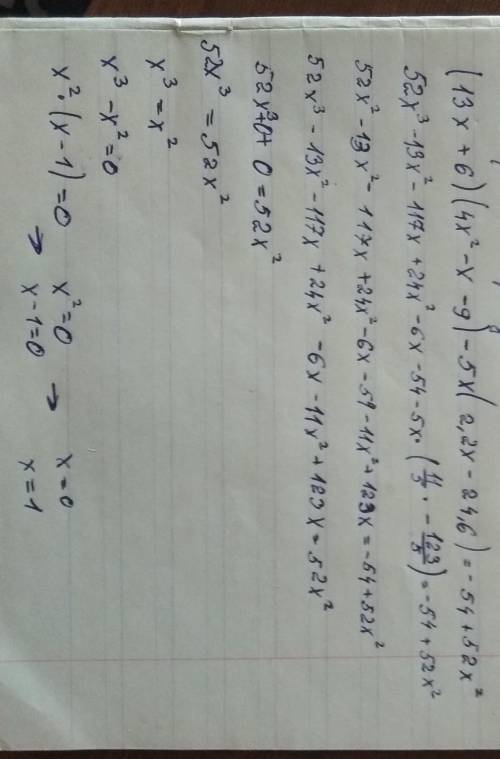 (13x + 6)(4x² - x - 9) - 5x(2,2x - 24,6) = -54 + 52x²
52x³ - 13x² - 117x + 24x² - 6x - 54 - 5x · (11/5 · - 123/5) = -54 + 52x²
52x² - 13x² - 117x + 24x² - 6x - 54 - 11x² + 123x = -54 + 52x²
52x³ - 13x² - 117x + 24x² - 6x - 11x² + 123x = 52x²
52x³ + 0 + 0 = 52x²
52x³ = 52x²
x³ = x²
x³ - x² = 0
x² · (x - 1) = 0 x² = 0 → x = 0
→ x - 1 = 0 x = 1